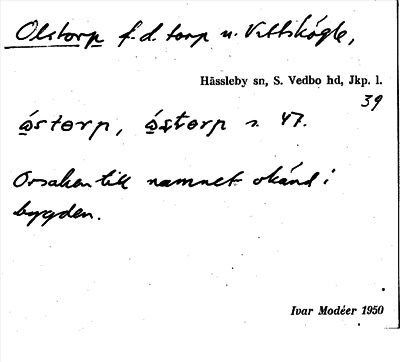 Olstorp f.d. torp u. Vittskögle,
Hässleby sn, S. Vedbo hd, Jkp. l.
39
åstorp, åstorp s. 47.
Orsaken till namnet okänd i
bygden.
Ivar Modéer 1950